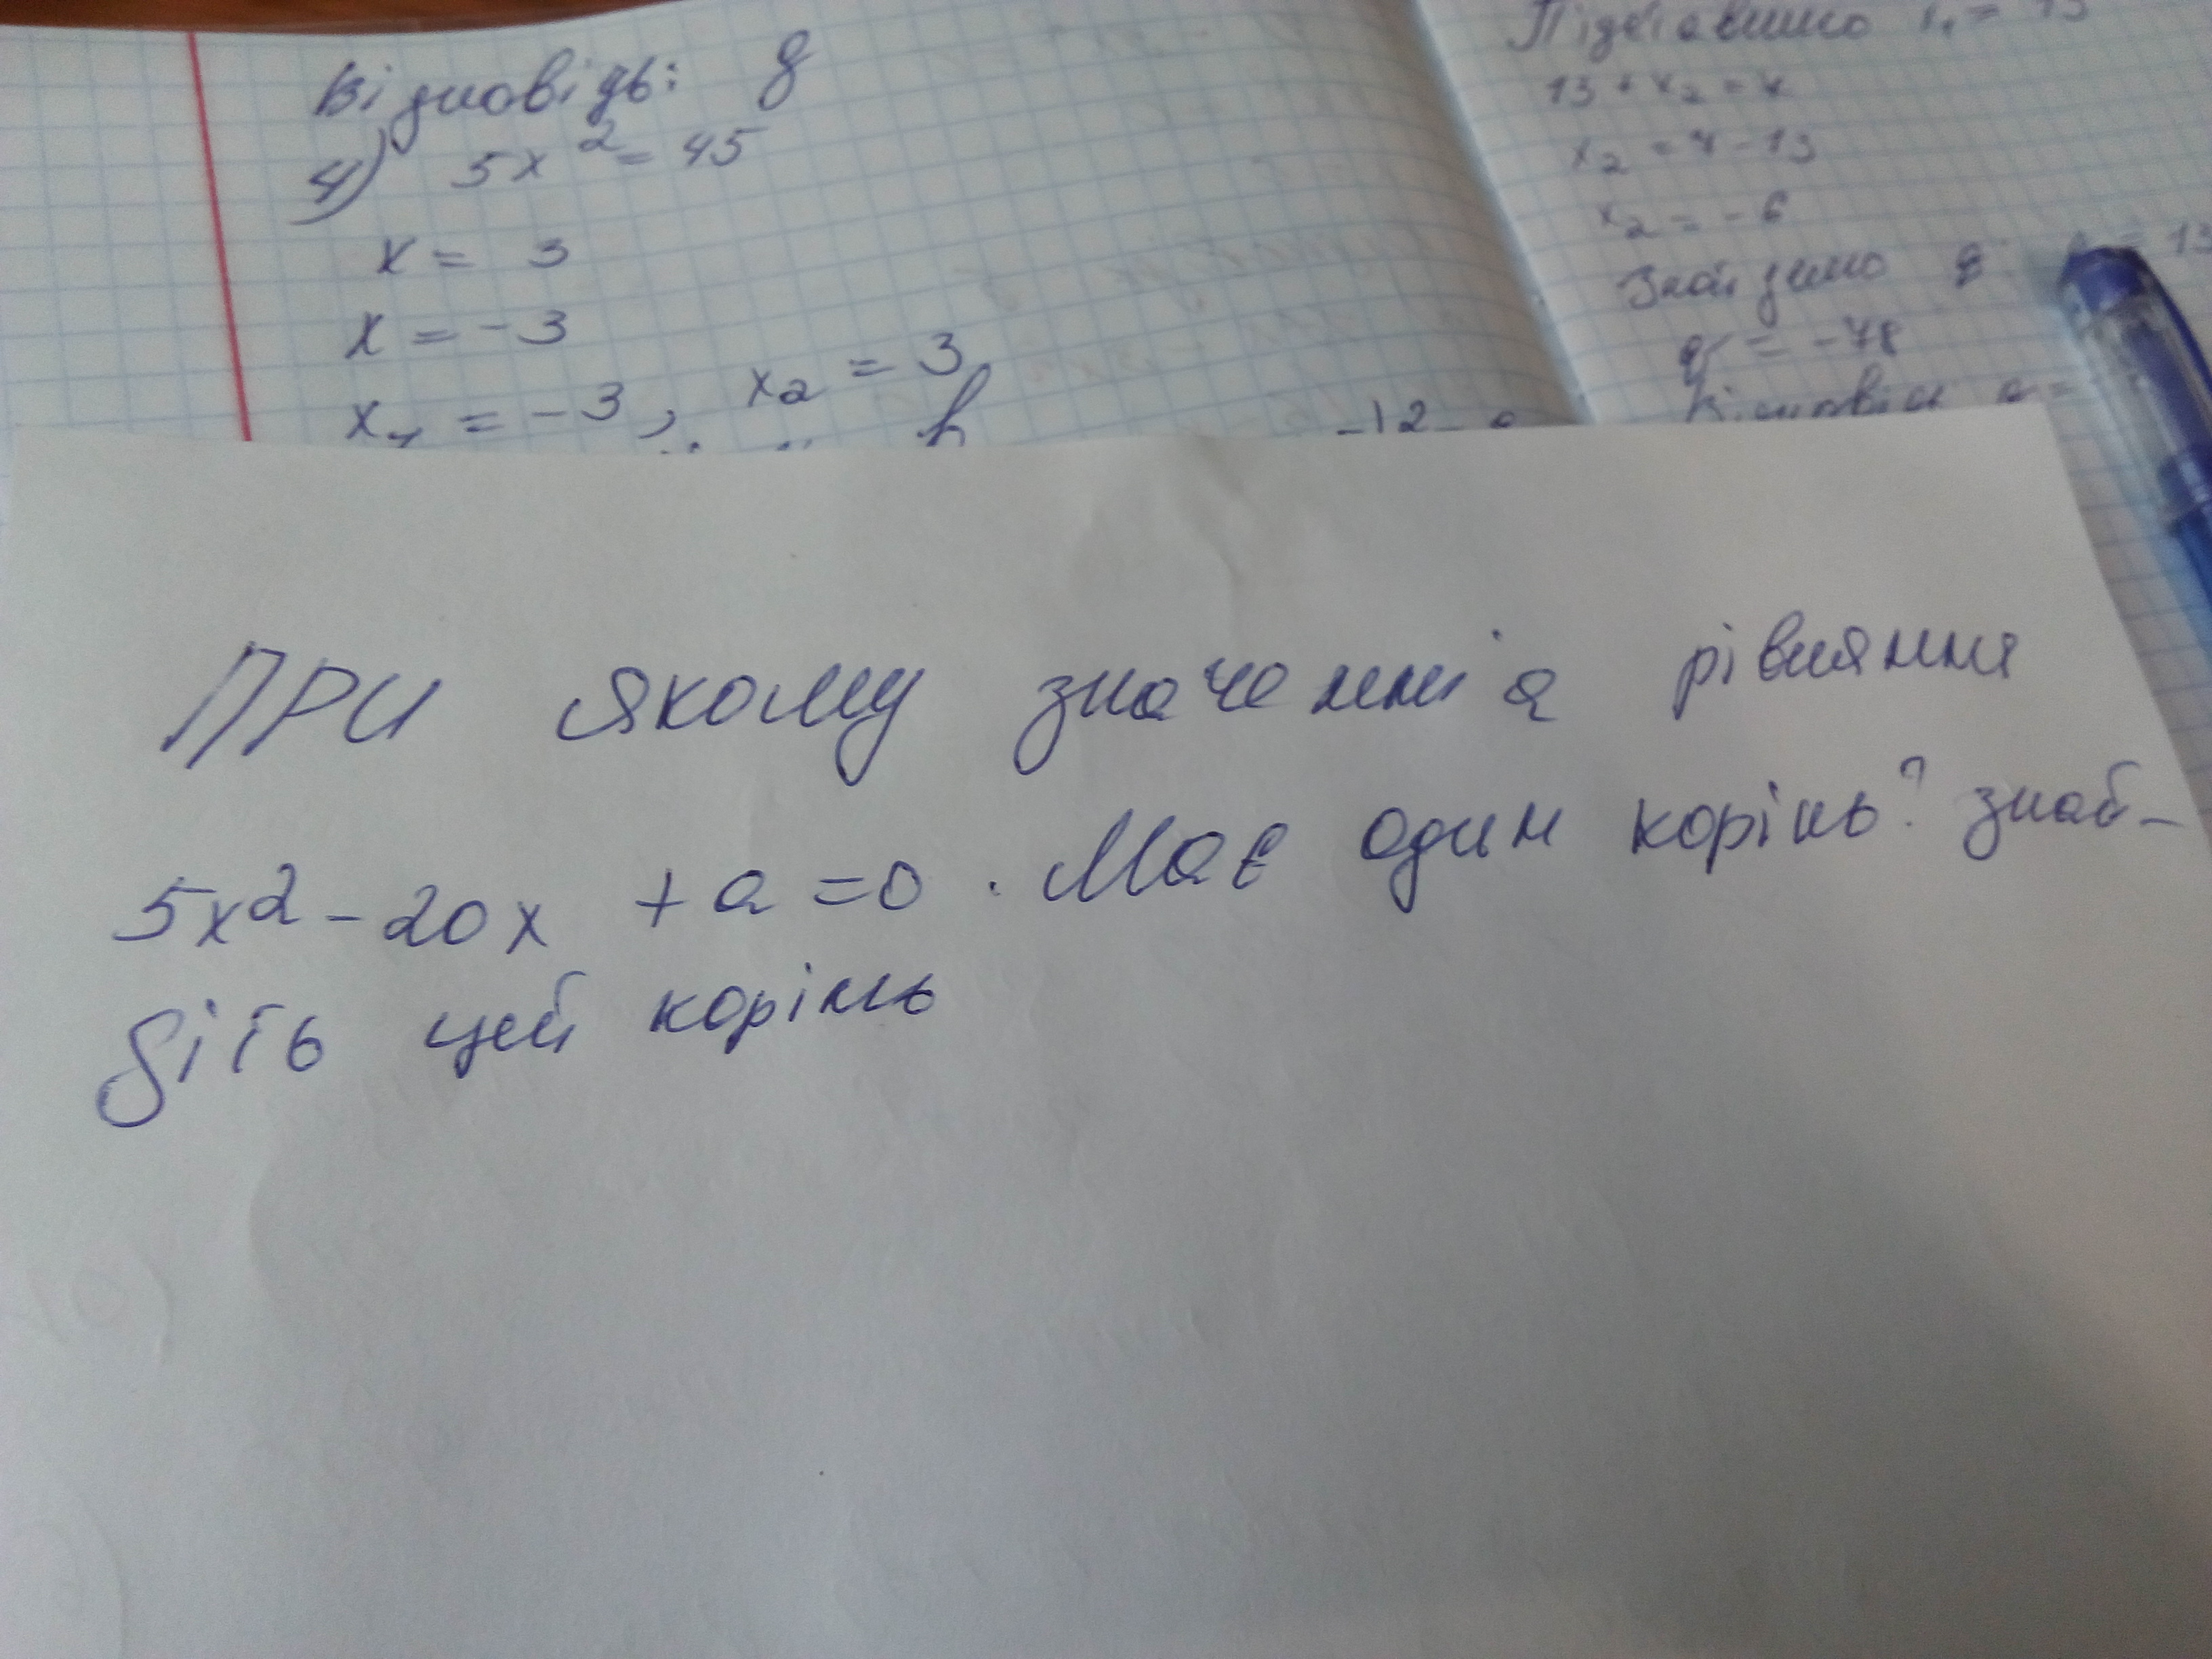 Відповідь: g
4) 5x² = 45
x = 3
x = -3
x₁ = -3, x₂ = 3
Підставимо = 13
13 + x₂ = 7
x₂ = 7 - 13
x₂ = -6
Знайдемо g
g = -78
ПРИ якому значенні а рівняння
5x² - 20x + a = 0. Має один корінь? знай-
діть цей корінь